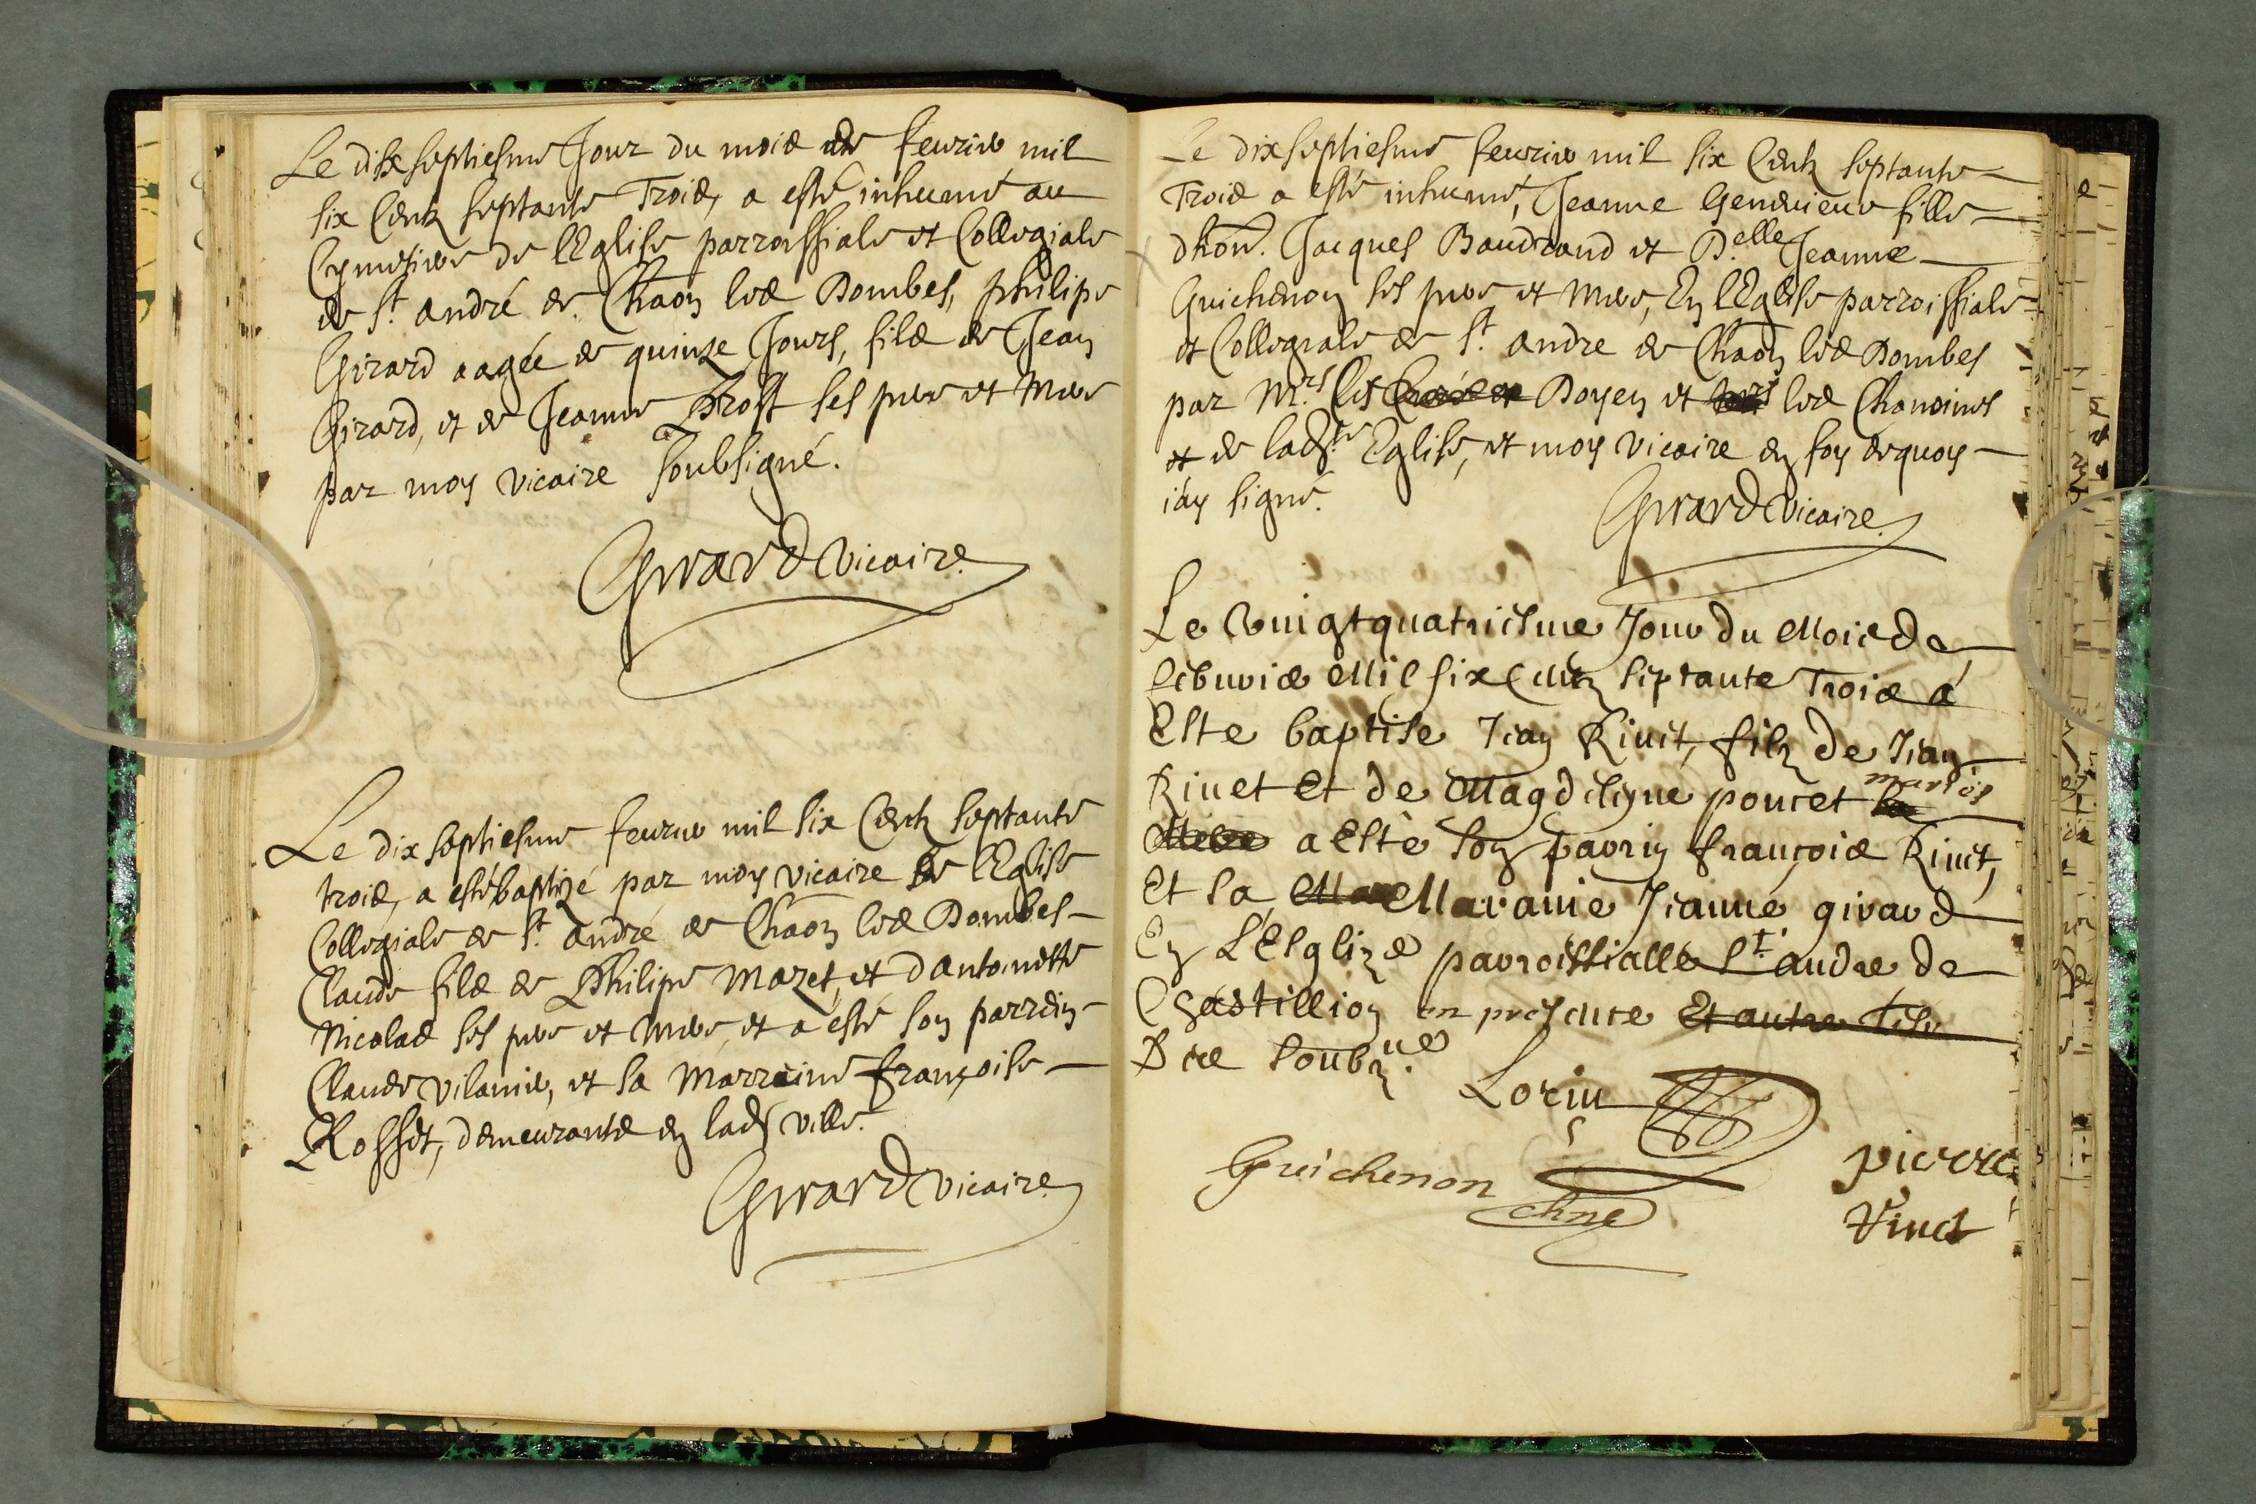 Le dixseptiesme Jour du mois de feurier mil
six Centz septante Trois, a esté inhumé au
Cymetiere de lEglise parroissiale et Collegiale
de St. andré de Chaōn les Dombes, philipe
Girard aagée de quinze Jours, fils de Jean
Girard, et de Jeanne Brost ses pere et Mere
par moy vicaire soubsigné.
Girard vicaire.
Le dix septiesme feurier mil six Centz septante
trois, a esté baptizé par moy vicaire de lEglise
Collegiale de St. andré de Chaōn les Dombes
Claude fils de Philipe Mazet, et dantoinette
Nicolas ses pere et Mere, et a esté son parrein
Claude vilanié, et sa Marraine françoise
Rosset, demeurants en lad. ville.
Girard vicaire
Le dixseptiesme feurier mil six Centz septante
Trois a esté inhumé, Jeanne Geneuieue fille
dhon. Jacques Baudrand et D.elle Jeanne
Guichenon ses pere et Mere, En lEglise parroissiale
et Collegiale de St. andre de Chaōn les Dombes
par M.rs les Curé et Doyen et les Chanoines
et de lad.te Eglise, et moy vicaire en foy dequoy
iay signé.
Girard vicaire.
Le vuigtquatriesme Jour du Mois de
feburier Mil six Centz septante Trois a
Este baptise Jean Riuet, filz de Jean
Riuet Et de Magdeleyne poncet mariés la
Mere a Esté son parrin françois Riuet,
Et sa Mar Maranie Jeanne girard
En L'Esglize parroissialle St. andre de
Chastillion en presence Et autre Tesm
Des soubz.nes
Lorin
Guichenon
chne
pierre
Vinct